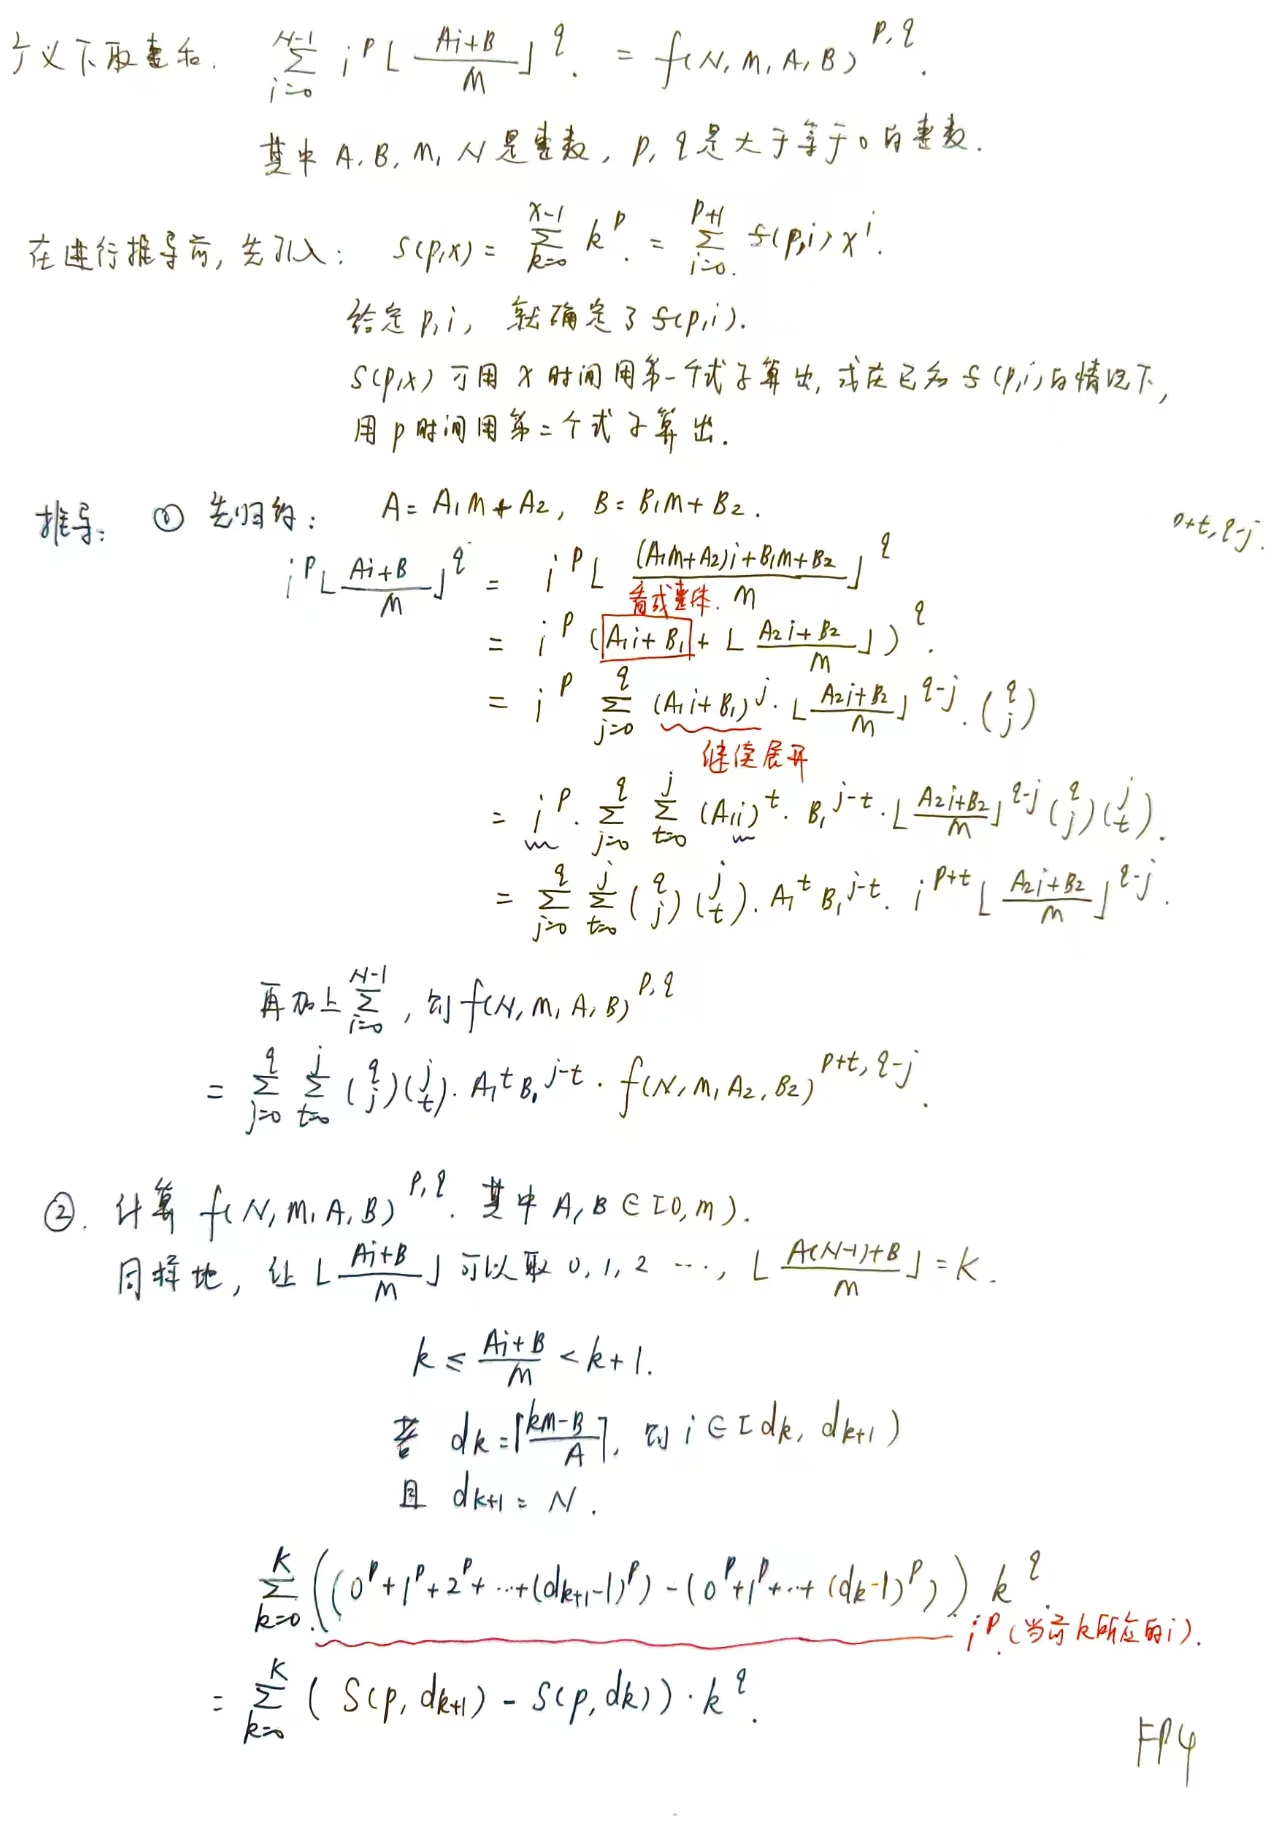 广义下取整和. \sum_{i=0}^{N-1} i^p ⌊\frac{Ai+B}{M}⌋^q. = f(N, M, A, B)^{p,q}.
其中 A, B, M, N 是整数, p, q 是大于等于0的整数.
在进行推导前, 先引入: S(p,x) = \sum_{k=0}^{x-1} k^p. = \sum_{i=0}^{p+1} s(p,i) x^i.
给定 p, i, 就确定了 s(p,i).
S(p,x) 可用 x 时间用第一个式子算出, 或在已知 s(p,i) 的情况下,
用 p 时间用第二个式子算出.
推导: ① 先归约: A = A_1M + A_2, B = B_1M + B_2.
p+t, q-j.
i^p ⌊\frac{Ai+B}{M}⌋^q = i^p ⌊\frac{(A_1M+A_2)i+B_1M+B_2}{M}⌋^q
看成整体.
= i^p (A_1i + B_1 + ⌊\frac{A_2i+B_2}{M}⌋)^q.
= i^p \sum_{j=0}^{q} (A_1i+B_1)^j · ⌊\frac{A_2i+B_2}{M}⌋^{q-j} · \binom{q}{j}
继续展开
= i^p · \sum_{j=0}^{q} \sum_{t=0}^{j} (A_1i)^t · B_1^{j-t} · ⌊\frac{A_2i+B_2}{M}⌋^{q-j} \binom{q}{j} \binom{j}{t}.
= \sum_{j=0}^{q} \sum_{t=0}^{j} \binom{q}{j} \binom{j}{t} · A_1^t B_1^{j-t} · i^{p+t} ⌊\frac{A_2i+B_2}{M}⌋^{q-j}.
再加上 \sum_{i=0}^{N-1}, 则 f(N, M, A, B)^{p,q}
= \sum_{j=0}^{q} \sum_{t=0}^{j} \binom{q}{j} \binom{j}{t} · A_1^t B_1^{j-t} · f(N, M, A_2, B_2)^{p+t, q-j}.
②. 计算 f(N, M, A, B)^{p,q}. 其中 A, B ∈ [0, m).
同样地, 让 ⌊\frac{Ai+B}{M}⌋ 可以取 0, 1, 2 ···, ⌊\frac{A(N-1)+B}{M}⌋ = K.
k ≤ \frac{Ai+B}{M} < k+1.
若 d_k = ⌈\frac{kM-B}{A}⌉, 则 i ∈ [d_k, d_{k+1})
且 d_{K+1} = N.
\sum_{k=0}^{K} ((0^p + 1^p + 2^p + ··· + (d_{k+1}-1)^p) - (0^p + 1^p + ··· + (d_k-1)^p)) k^q.
i^p. (当前k所应的i).
= \sum_{k=0}^{K} (S(p, d_{k+1}) - S(p, d_k)) · k^q.